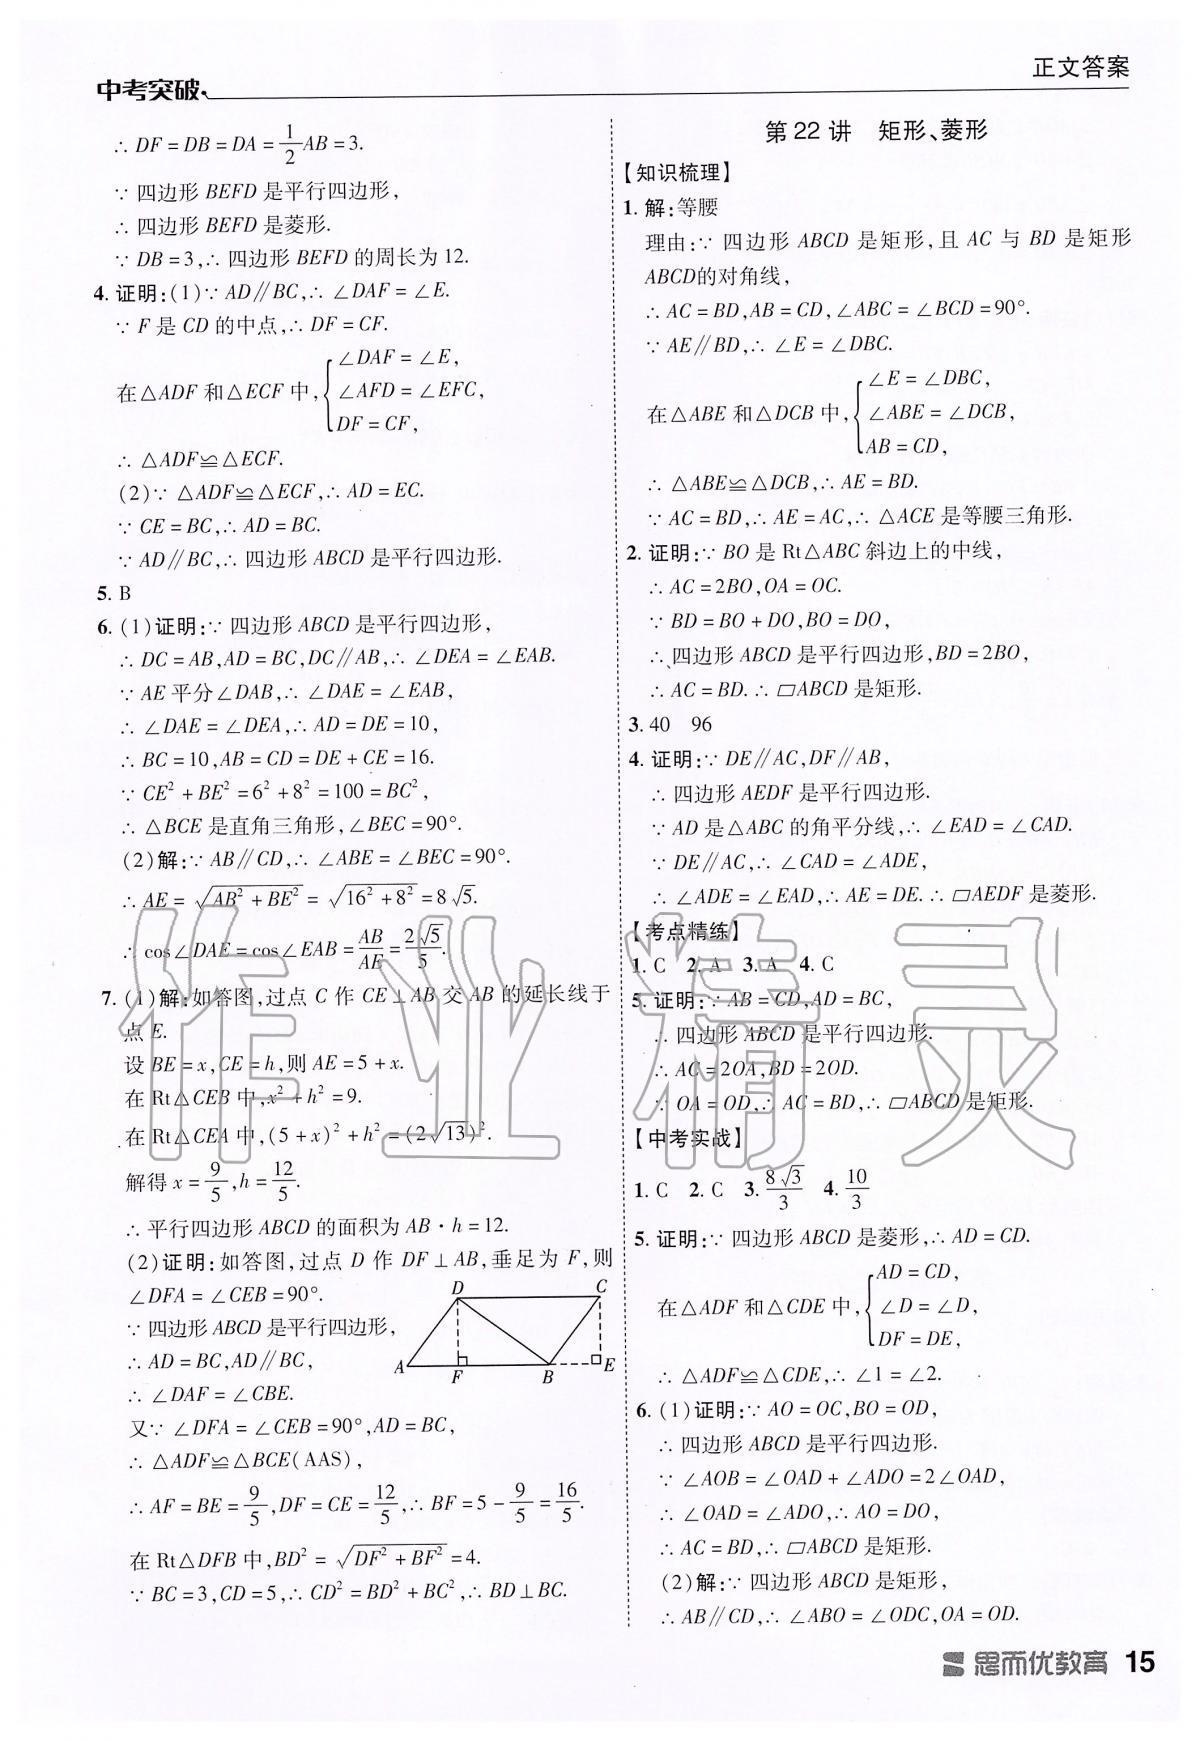 中考突破
正文答案
∴ DF = DB = DA = 1/2 AB = 3.
∵ 四边形 BEFD 是平行四边形,
∴ 四边形 BEFD 是菱形.
∵ DB = 3,∴ 四边形 BEFD 的周长为 12.
4. 证明:(1)∵ AD∥BC,∴ ∠DAF = ∠E.
∵ F 是 CD 的中点,∴ DF = CF.
在△ADF 和△ECF 中,{∠DAF = ∠E,
∠AFD = ∠EFC,
DF = CF,
∴ △ADF≌△ECF.
(2)∵ △ADF≌△ECF,∴ AD = EC.
∵ CE = BC,∴ AD = BC.
∵ AD∥BC,∴ 四边形 ABCD 是平行四边形.
5. B
6. (1)证明:∵ 四边形 ABCD 是平行四边形,
∴ DC = AB,AD = BC,DC∥AB,∴ ∠DEA = ∠EAB.
∵ AE 平分∠DAB,∴ ∠DAE = ∠EAB,
∴ ∠DAE = ∠DEA,∴ AD = DE = 10,
∴ BC = 10,AB = CD = DE + CE = 16.
∵ CE² + BE² = 6² + 8² = 100 = BC²,
∴ △BCE 是直角三角形,∠BEC = 90°.
(2)解:∵ AB∥CD,∴ ∠ABE = ∠BEC = 90°.
∴ AE = √(AB² + BE²) = √(16² + 8²) = 8√5.
∴ cos∠DAE = cos∠EAB = AB/AE = 2√5/5.
7. (1)解:如答图,过点 C 作 CE⊥AB 交 AB 的延长线于
点 E.
设 BE = x,CE = h,则 AE = 5 + x.
在 Rt△CEB 中,x² + h² = 9.
在 Rt△CEA 中,(5 + x)² + h² = (2√13)².
解得 x = 9/5,h = 12/5.
∴ 平行四边形 ABCD 的面积为 AB · h = 12.
(2)证明:如答图,过点 D 作 DF⊥AB,垂足为 F,则
∠DFA = ∠CEB = 90°.
∵ 四边形 ABCD 是平行四边形,
∴ AD = BC,AD∥BC,
∴ ∠DAF = ∠CBE.
又∵ ∠DFA = ∠CEB = 90°,AD = BC,
∴ △ADF≌△BCE(AAS),
∴ AF = BE = 9/5,DF = CE = 12/5,∴ BF = 5 - 9/5 = 16/5.
在 Rt△DFB 中,BD² = √(DF² + BF²) = 4.
∵ BC = 3,CD = 5,∴ CD² = BD² + BC²,∴ BD⊥BC.
D C
A F B E
第 22 讲 矩形、菱形
【知识梳理】
1. 解:等腰
理由:∵ 四边形 ABCD 是矩形,且 AC 与 BD 是矩形
ABCD的对角线,
∴ AC = BD,AB = CD,∠ABC = ∠BCD = 90°.
∵ AE∥BD,∴ ∠E = ∠DBC.
在△ABE 和△DCB 中,{∠E = ∠DBC,
∠ABE = ∠DCB,
AB = CD,
∴ △ABE≌△DCB,∴ AE = BD.
∵ AC = BD,∴ AE = AC,∴ △ACE 是等腰三角形.
2. 证明:∵ BO 是 Rt△ABC 斜边上的中线,
∴ AC = 2BO,OA = OC.
∵ BD = BO + DO,BO = DO,
∴ 四边形 ABCD 是平行四边形,BD = 2BO,
∴ AC = BD. ∴ ▱ABCD 是矩形.
3. 40 96
4. 证明:∵ DE∥AC,DF∥AB,
∴ 四边形 AEDF 是平行四边形.
∵ AD 是△ABC 的角平分线,∴ ∠EAD = ∠CAD.
∵ DE∥AC,∴ ∠CAD = ∠ADE,
∴ ∠ADE = ∠EAD,∴ AE = DE. ∴ ▱AEDF 是菱形.
【考点精练】
1. C 2. A 3. A 4. C
5. 证明:∵ AB = CD,AD = BC,
∴ 四边形 ABCD 是平行四边形.
∴ AC = 2OA,BD = 2OD.
∵ OA = OD,∴ AC = BD,∴ ▱ABCD 是矩形.
【中考实战】
1. C 2. C 3. 8√3/3 4. 10/3
5. 证明:∵ 四边形 ABCD 是菱形,∴ AD = CD.
在△ADF 和△CDE 中,{AD = CD,
∠D = ∠D,
DF = DE,
∴ △ADF≌△CDE,∴ ∠1 = ∠2.
6. (1)证明:∵ AO = OC,BO = OD,
∴ 四边形 ABCD 是平行四边形.
∵ ∠AOB = ∠OAD + ∠ADO = 2∠OAD,
∴ ∠OAD = ∠ADO,∴ AO = DO,
∴ AC = BD,∴ ▱ABCD 是矩形.
(2)解:∵ 四边形 ABCD 是矩形,
∴ AB∥CD,∴ ∠ABO = ∠ODC,OA = OD.
思而优教育 15
作业精灵